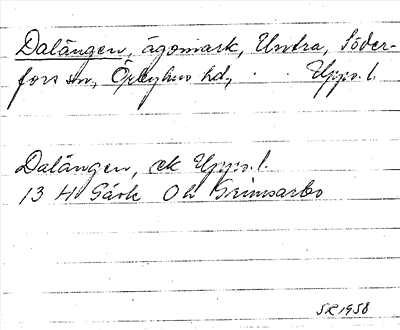 Dalängen, ägomark, Untra, Söder-
fors sn, Örbyhus hd, Upps. l.
Dalängen, ek Upps. l.
13 H Gävle Oh Grimsarbo
SR 1958